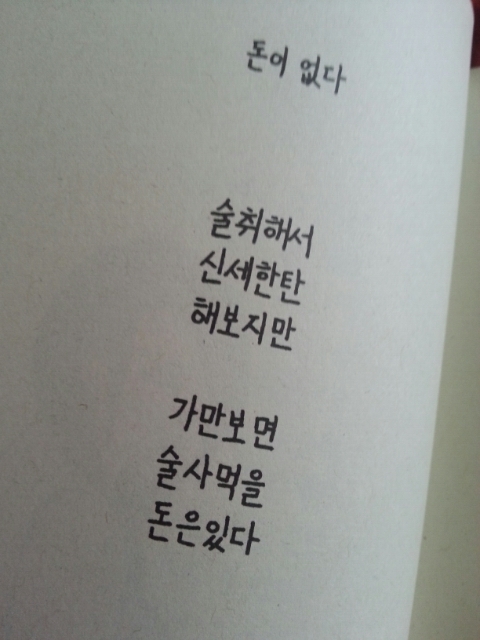 돈이 없다
술취해서
신세한탄
해보지만
가만보면
술사먹을
돈은있다